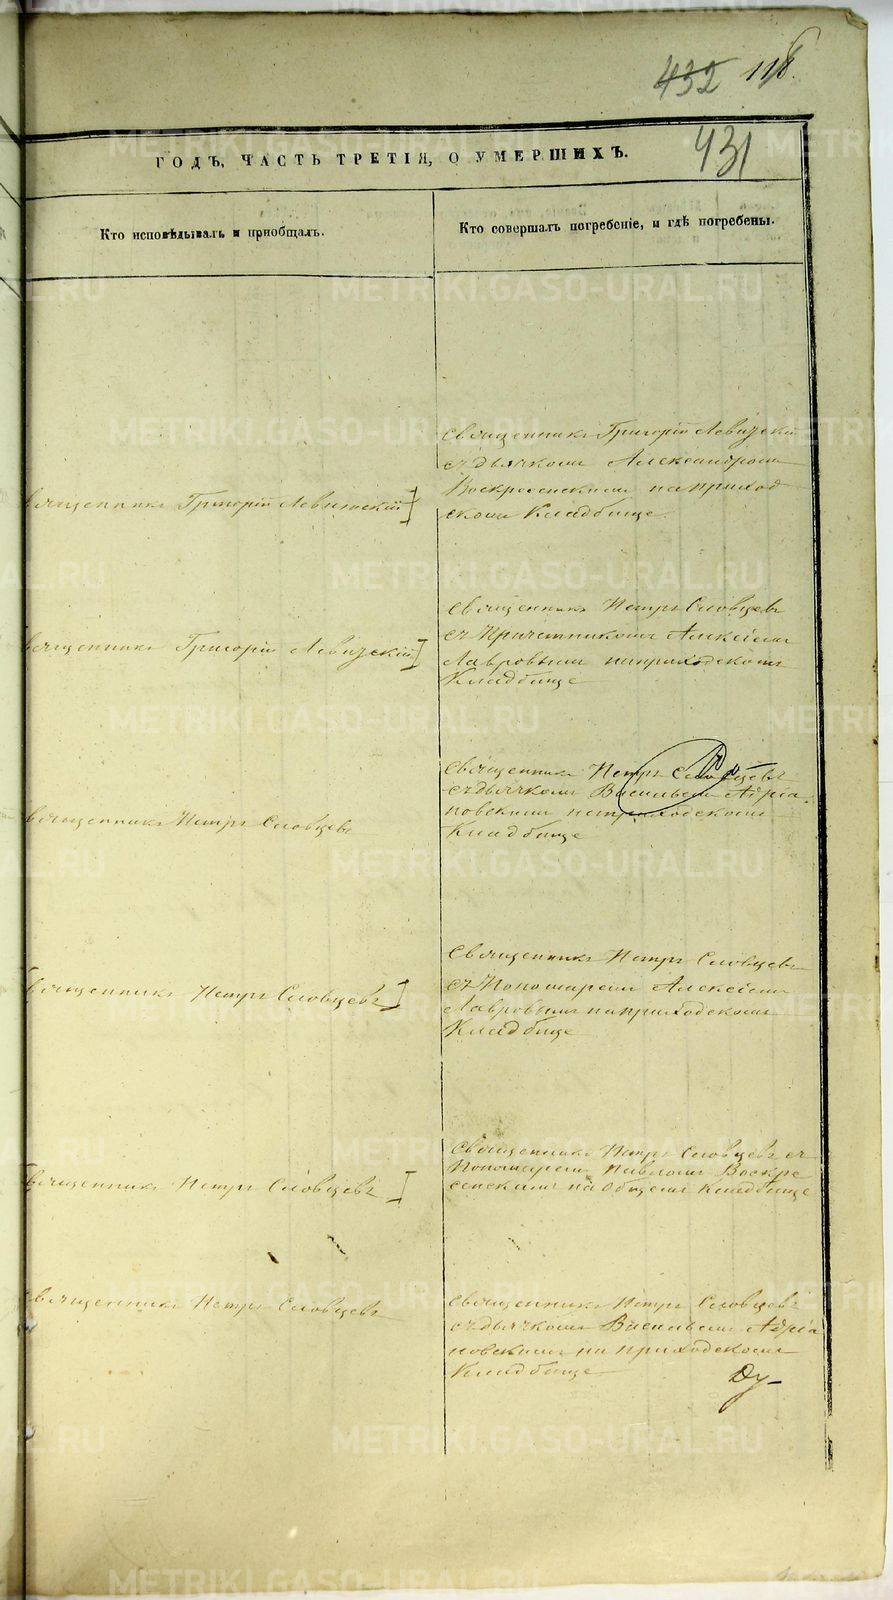 432 118.
431
ГОДЪ, ЧАСТЬ ТРЕТІЯ, О УМЕРШИХЪ.
Кто исповѣдывалъ и пріобщалъ.
Кто совершалъ погребеніе, и гдѣ погребены.
Священникъ Григорій Левитскій
Священникъ Григорій Левитскій
съ дьячкомъ Александромъ
Воскресенскимъ на приход
скомъ Кладбище.
Священникъ Григорій Левитскій
Священникъ Петръ Словцевъ
съ Причетникомъ Алексіемъ
Лавровымъ на приходскомъ
Кладбище
Священникъ Петръ Словцевъ
Священникъ Петръ Словцевъ
съ дьячкомъ Васильемъ Адріа
новскимъ на приходскомъ
Кладбище
Священникъ Петръ Словцевъ
Священникъ Петръ Словцевъ
съ Пономаремъ Алексіемъ
Лавровымъ на приходскомъ
Кладбище
Священникъ Петръ Словцевъ
Священникъ Петръ Словцевъ съ
Пономаремъ Павломъ Воскре
сенскимъ на общемъ Кладбище
Священникъ Петръ Словцевъ
Священникъ Петръ Словцевъ
съ дьячкомъ Васильемъ Адріа
новскимъ на приходскомъ
Кладбище
Ду-
METRIKI.GASO-URAL.RU